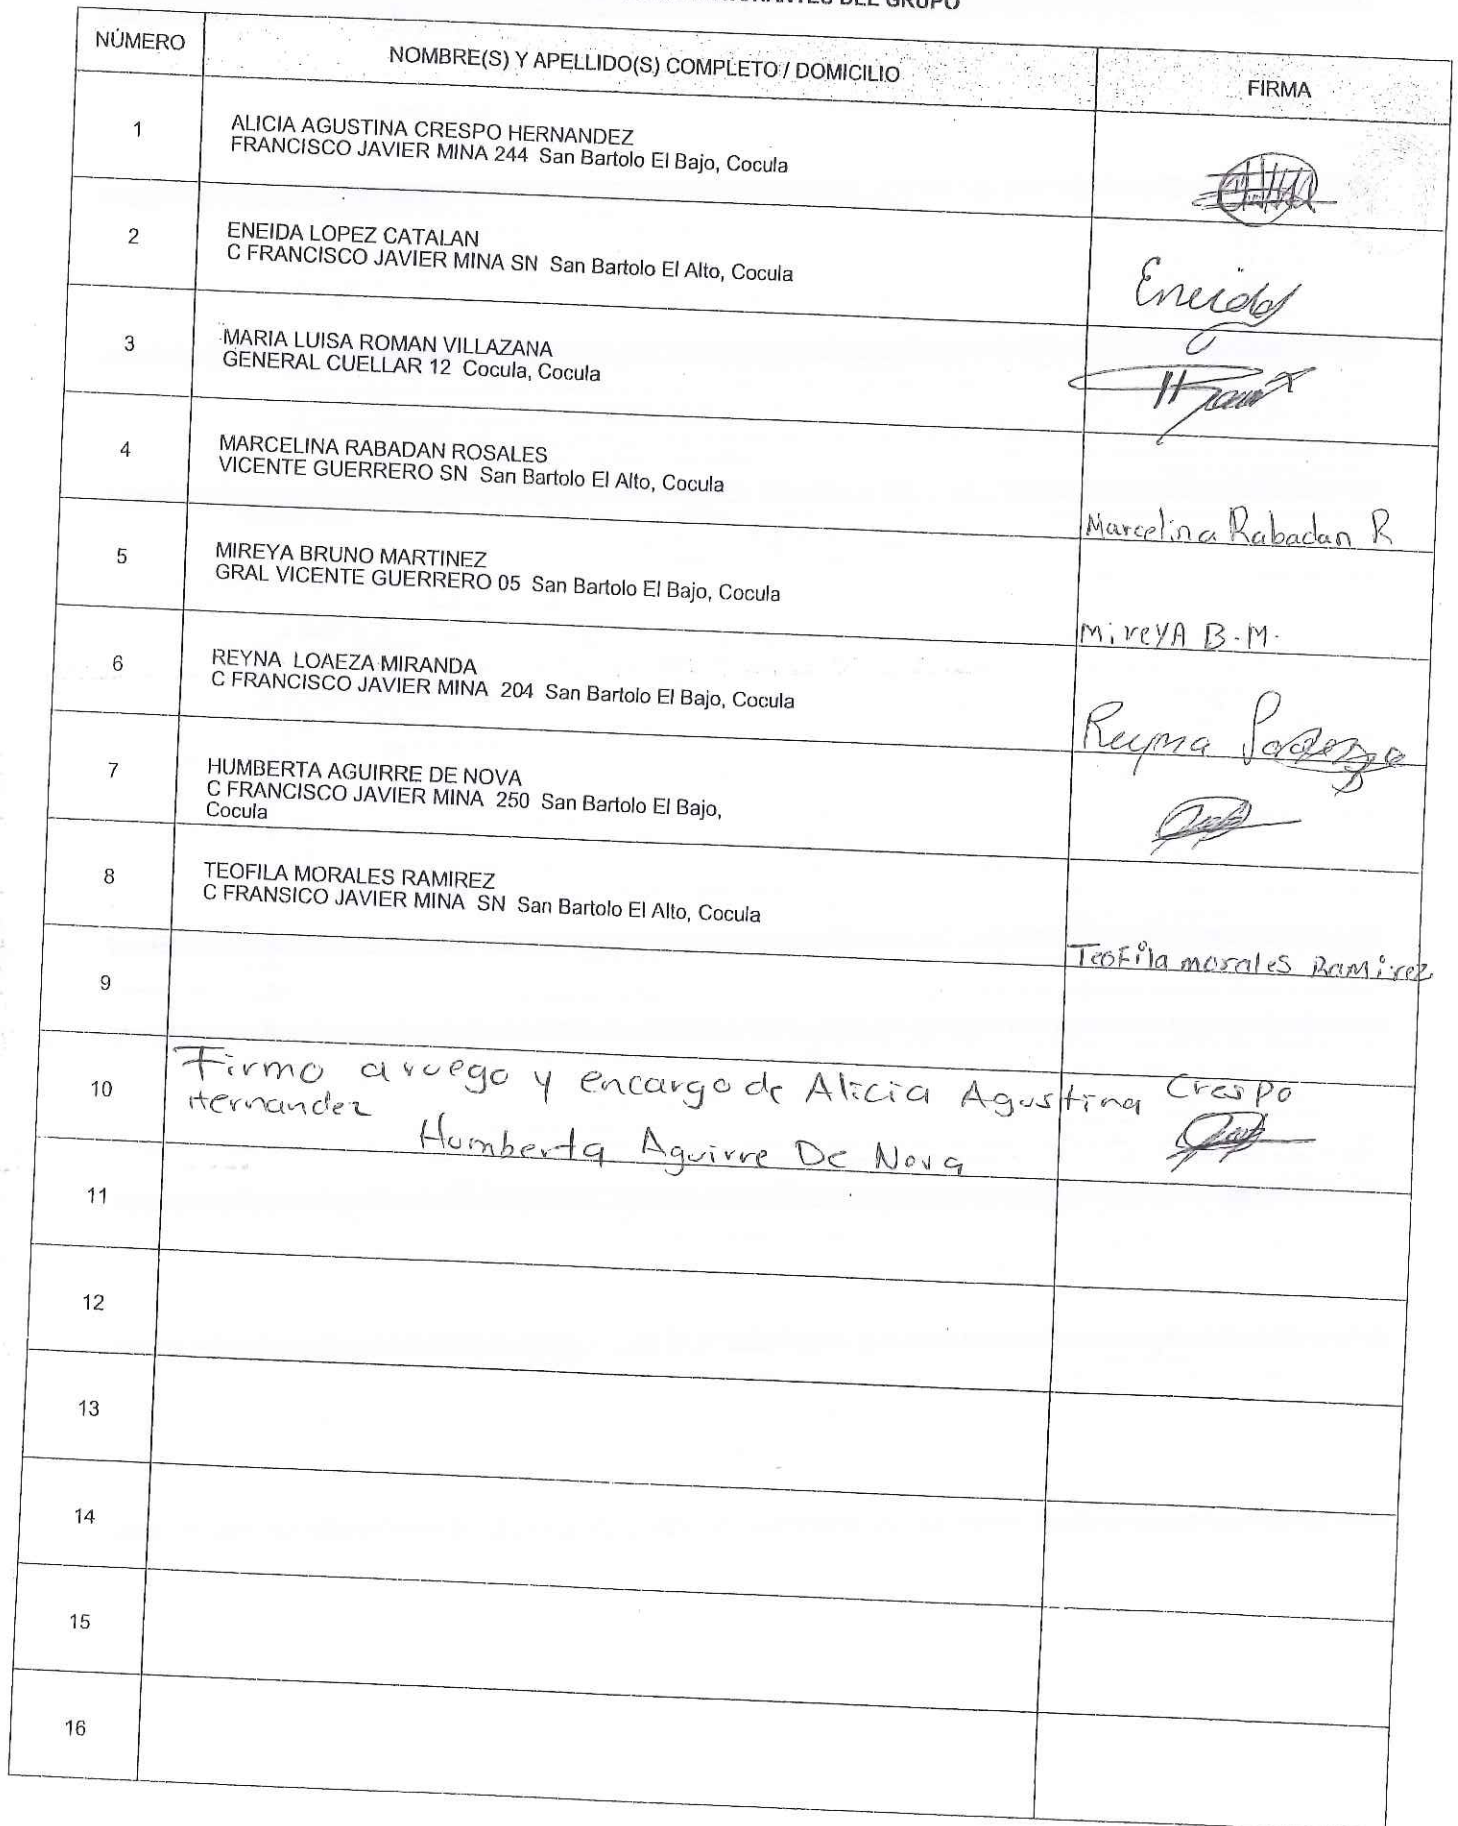 DEL GRUPO
NÚMERO
NOMBRE(S) Y APELLIDO(S) COMPLETO / DOMICILIO
FIRMA
1
ALICIA AGUSTINA CRESPO HERNANDEZ
FRANCISCO JAVIER MINA 244 San Bartolo El Bajo, Cocula
2
ENEIDA LOPEZ CATALAN
C FRANCISCO JAVIER MINA SN San Bartolo El Alto, Cocula
Eneida
3
MARIA LUISA ROMAN VILLAZANA
GENERAL CUELLAR 12 Cocula, Cocula
4
MARCELINA RABADAN ROSALES
VICENTE GUERRERO SN San Bartolo El Alto, Cocula
Marcelina Rabadan R
5
MIREYA BRUNO MARTINEZ
GRAL VICENTE GUERRERO 05 San Bartolo El Bajo, Cocula
MireyA B.M.
6
REYNA LOAEZA MIRANDA
C FRANCISCO JAVIER MINA 204 San Bartolo El Bajo, Cocula
Reyna Loaeza
7
HUMBERTA AGUIRRE DE NOVA
C FRANCISCO JAVIER MINA 250 San Bartolo El Bajo,
Cocula
8
TEOFILA MORALES RAMIREZ
C FRANSICO JAVIER MINA SN San Bartolo El Alto, Cocula
TeoFila morales RaMirez
9
10
Firmo a ruego y encargo de Alicia Agustina Crespo
Hernandez
Humberta Aguirre De Nova
11
12
13
14
15
16